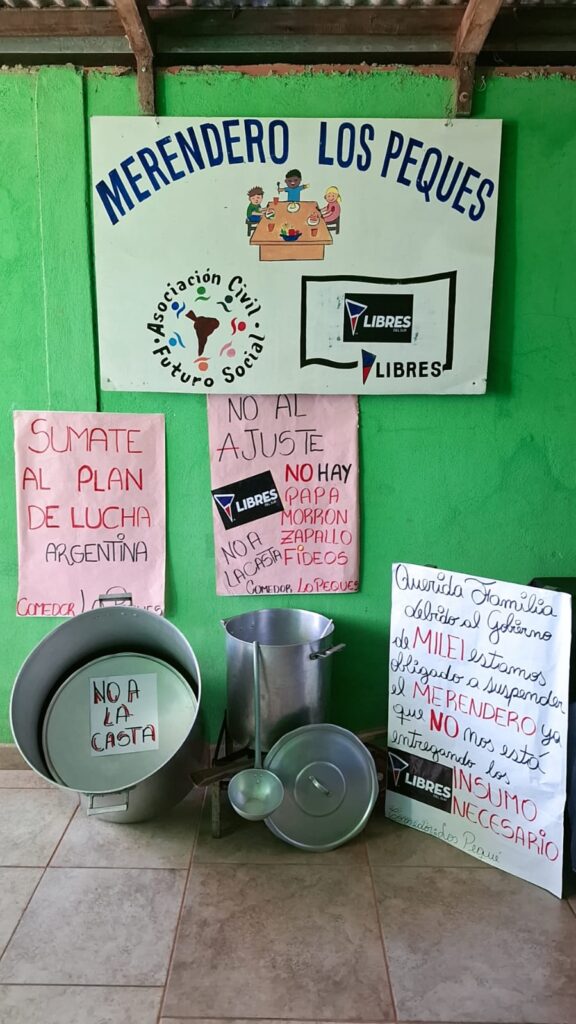 MERENDERO LOS PEQUES
Asociación Civil
Futuro Social
LIBRES
DEL SUR
LIBRES
SUMATE
AL PLAN
DE LUCHA
ARGENTINA
COMEDOR
NO AL
AJUSTE
NO HAY
PAPA
MORRON
ZAPALLO
FIDEOS
LIBRES
DEL SUR
NO A
LA CASTA
COMEDOR LOPEQUES
NO A
LA
CASTA
Querida Familia
debido al Gobierno
de MILEI estamos
obligado a suspender
el MERENDERO ya
que NO nos está
entregando los
INSUMO
NECESARIO
LIBRES
DEL SUR
Comedor Los Pequé